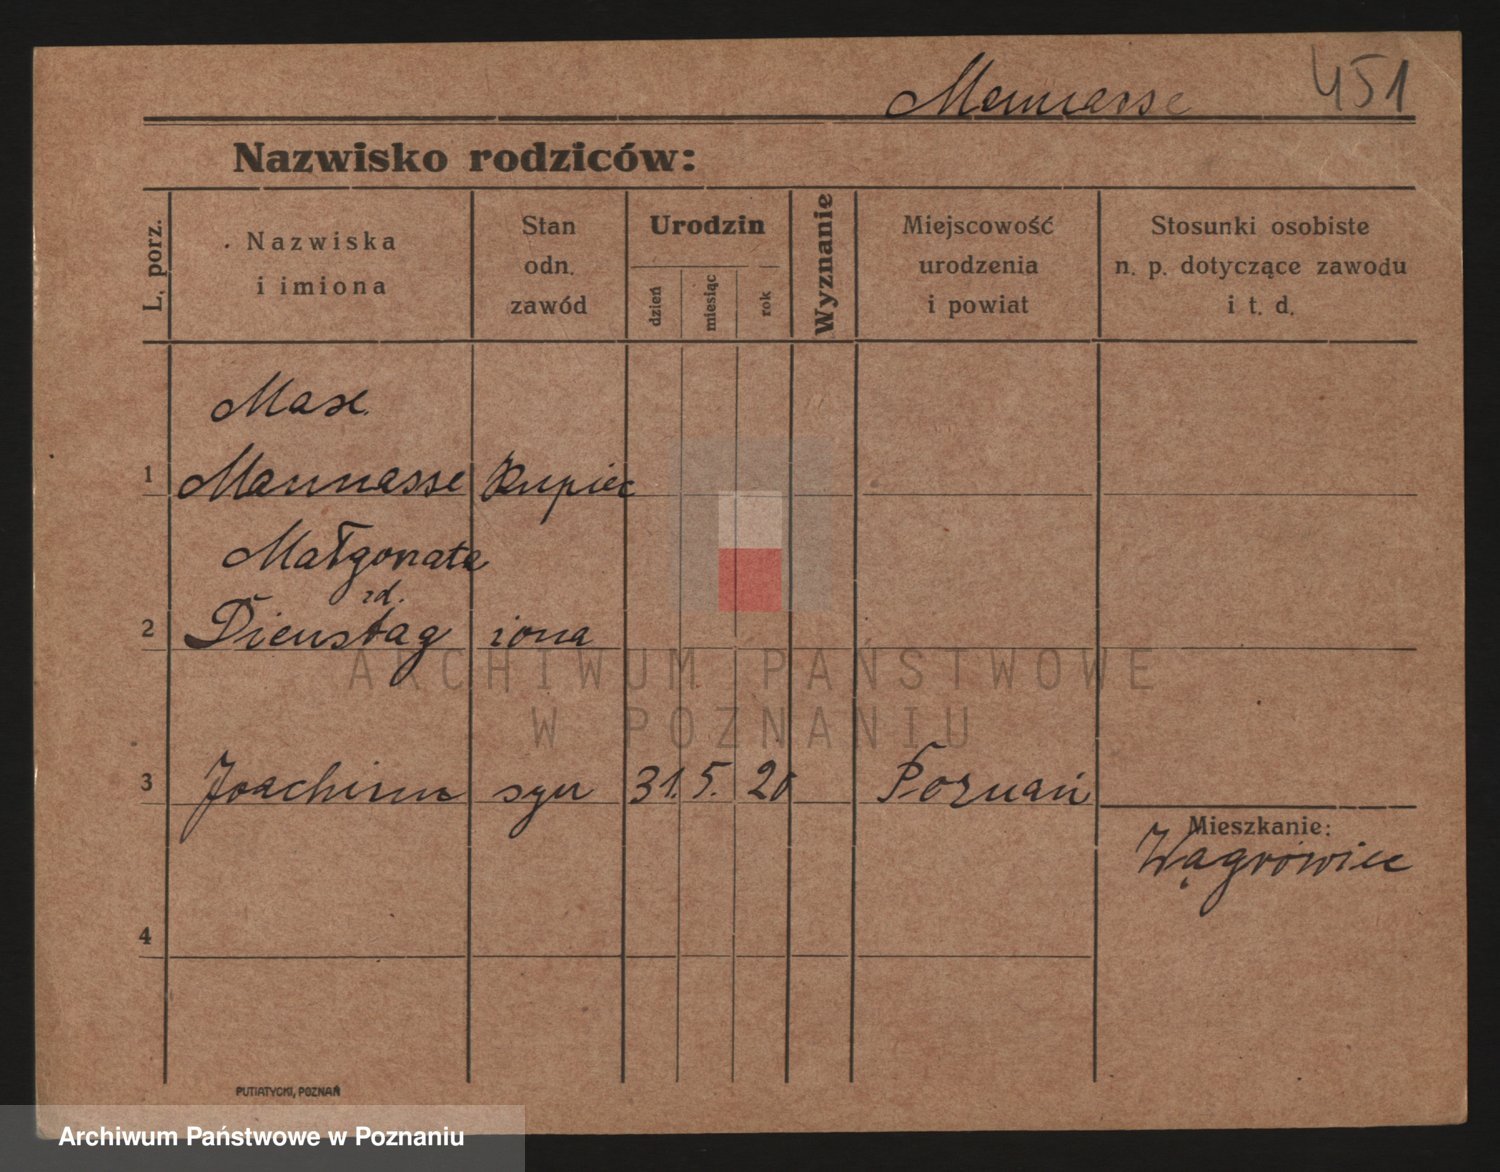 Mannasse 451
Nazwisko rodziców:
L. porz.
Nazwiska
i imiona
Stan
odn.
zawód
Urodzin
dzień
miesiąc
rok
Wyznanie
Miejscowość
urodzenia
i powiat
Stosunki osobiste
n. p. dotyczące zawodu
i t. d.
Max
1 Mannasse Kupiec
Małgorzata
zd.
2 Dienstag żona
ARCHIWUM PAŃSTWOWE
W POZNANIU
3 Joachim syn 31. 5. 20 Poznań
Mieszkanie:
Wągrówiec
4
PUTIATYCKI, POZNAŃ
Archiwum Państwowe w Poznaniu